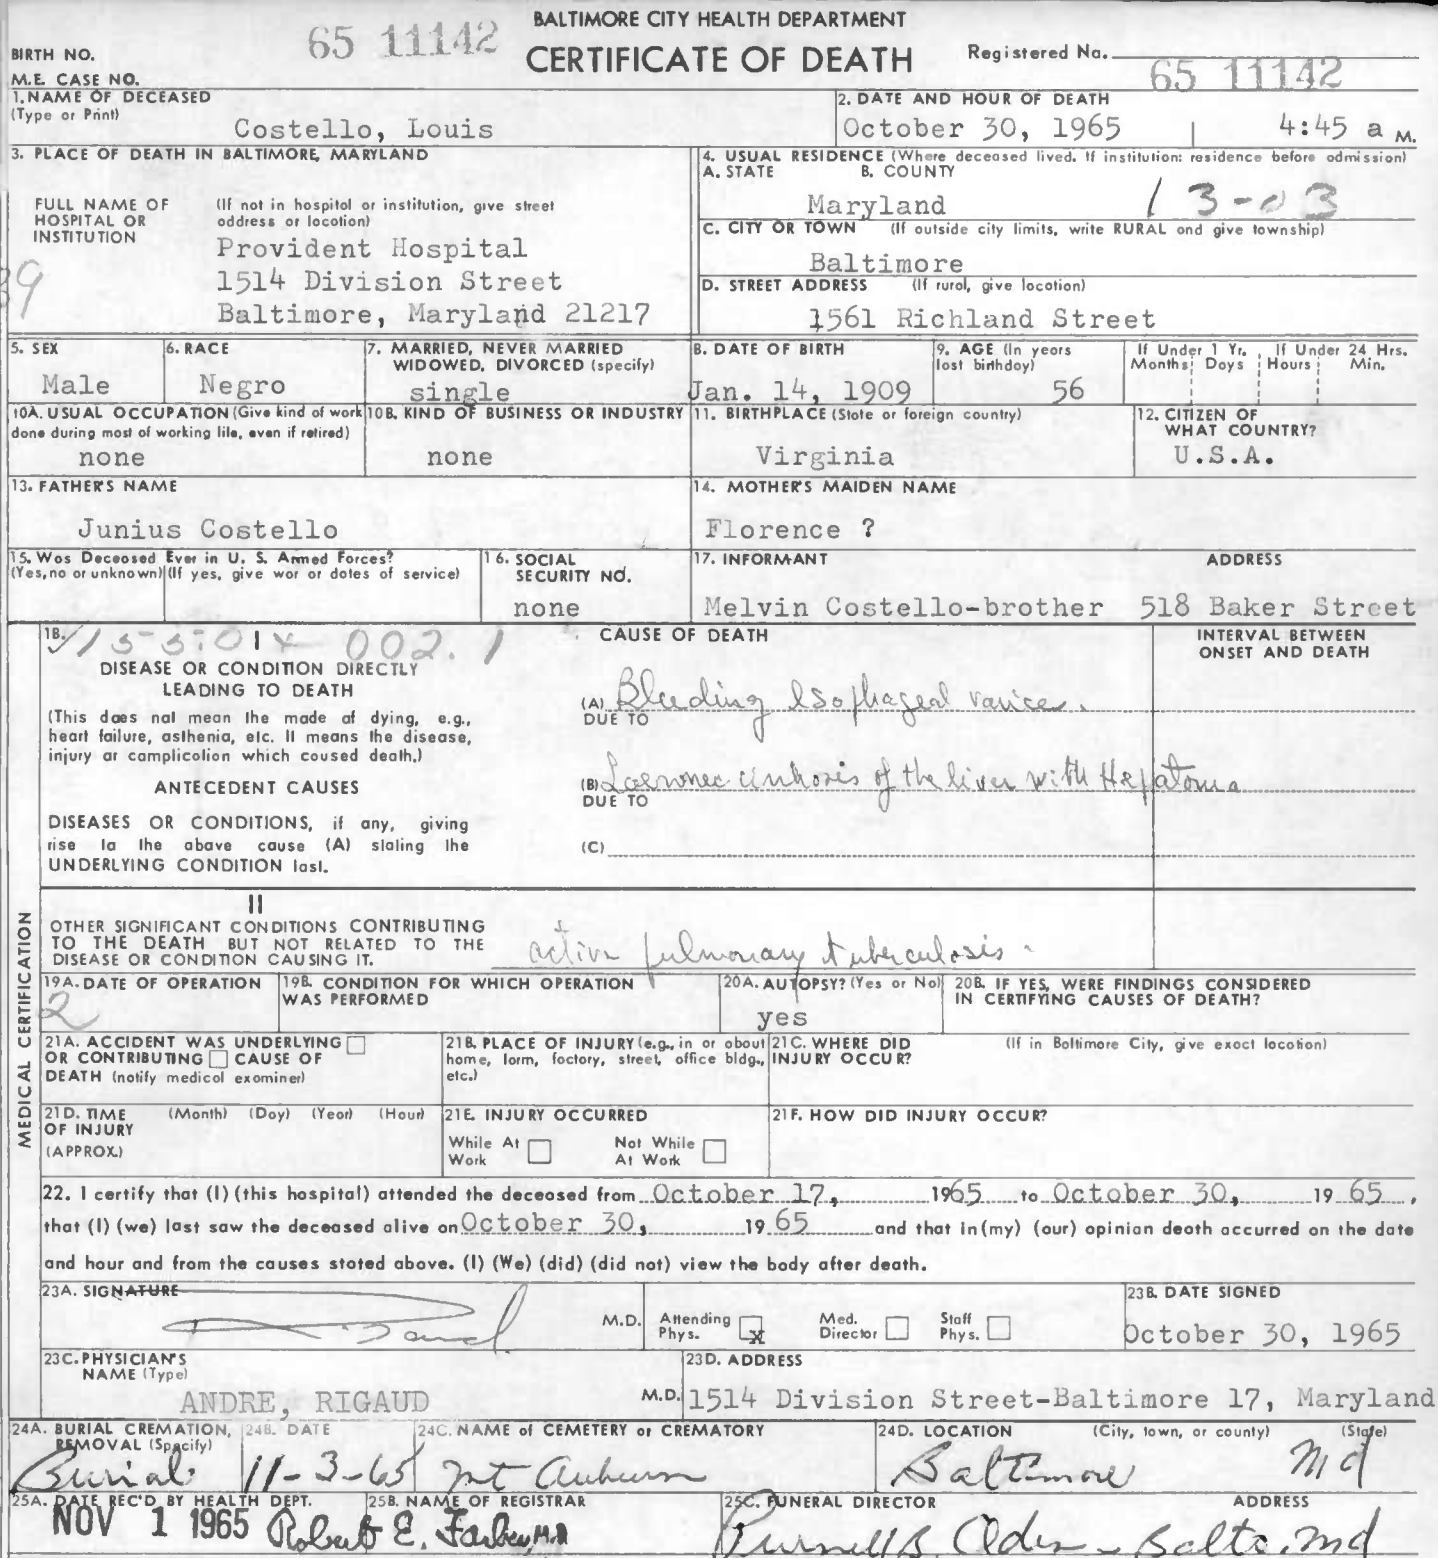 BALTIMORE CITY HEALTH DEPARTMENT
65 11142
BIRTH NO.
CERTIFICATE OF DEATH
Registered No.
65 11142
M.E. CASE NO.
1. NAME OF DECEASED
(Type or Print)
Costello, Louis
2. DATE AND HOUR OF DEATH
October 30, 1965 4:45 a M.
3. PLACE OF DEATH IN BALTIMORE, MARYLAND
FULL NAME OF
HOSPITAL OR
INSTITUTION
(If not in hospital or institution, give street
address or location)
Provident Hospital
1514 Division Street
Baltimore, Maryland 21217
39
4. USUAL RESIDENCE (Where deceased lived. If institution: residence before admission)
A. STATE B. COUNTY
Maryland 13-03
C. CITY OR TOWN (If outside city limits, write RURAL and give township)
Baltimore
D. STREET ADDRESS (If rural, give location)
1561 Richland Street
5. SEX
Male
6. RACE
Negro
7. MARRIED, NEVER MARRIED
WIDOWED, DIVORCED (specify)
single
8. DATE OF BIRTH
Jan. 14, 1909
9. AGE (In years
last birthday)
56
If Under 1 Yr.
Months Days
If Under 24 Hrs.
Hours Min.
10A. USUAL OCCUPATION (Give kind of work
done during most of working life, even if retired)
none
10B. KIND OF BUSINESS OR INDUSTRY
none
11. BIRTHPLACE (State or foreign country)
Virginia
12. CITIZEN OF
WHAT COUNTRY?
U.S.A.
13. FATHER'S NAME
Junius Costello
14. MOTHER'S MAIDEN NAME
Florence ?
15. Was Deceased Ever in U. S. Armed Forces?
(Yes, no or unknown) (If yes, give war or dates of service)
16. SOCIAL
SECURITY NO.
none
17. INFORMANT ADDRESS
Melvin Costello-brother 518 Baker Street
18. 002.1
DISEASE OR CONDITION DIRECTLY
LEADING TO DEATH
(This does not mean the mode of dying, e.g.,
heart failure, asthenia, etc. It means the disease,
injury or complication which caused death.)
ANTECEDENT CAUSES
DISEASES OR CONDITIONS, if any, giving
rise to the above cause (A) stating the
UNDERLYING CONDITION last.
CAUSE OF DEATH
INTERVAL BETWEEN
ONSET AND DEATH
(A) Bleeding Esophageal varices.
DUE TO
(B) Laennec cirrhosis of the liver with Hepatoma
DUE TO
(C)
MEDICAL CERTIFICATION
II
OTHER SIGNIFICANT CONDITIONS CONTRIBUTING
TO THE DEATH BUT NOT RELATED TO THE
DISEASE OR CONDITION CAUSING IT.
active pulmonary tuberculosis.
19A. DATE OF OPERATION
2
19B. CONDITION FOR WHICH OPERATION
WAS PERFORMED
20A. AUTOPSY? (Yes or No)
yes
20B. IF YES, WERE FINDINGS CONSIDERED
IN CERTIFYING CAUSES OF DEATH?
21A. ACCIDENT WAS UNDERLYING
OR CONTRIBUTING CAUSE OF
DEATH (notify medical examiner)
21B. PLACE OF INJURY (e.g., in or about
home, farm, factory, street, office bldg.,
etc.)
21C. WHERE DID
INJURY OCCUR?
(If in Baltimore City, give exact location)
21D. TIME (Month) (Day) (Year) (Hour)
OF INJURY
(APPROX.)
21E. INJURY OCCURRED
While At
Work
Not While
At Work
21F. HOW DID INJURY OCCUR?
22. I certify that (I) (this hospital) attended the deceased from October 17, 1965 to October 30, 19 65,
that (I) (we) last saw the deceased alive on October 30, 19 65 and that in (my) (our) opinion death occurred on the date
and hour and from the causes stated above. (I) (We) (did) (did not) view the body after death.
23A. SIGNATURE
M.D.
Attending
Phys. X
Med.
Director
Staff
Phys.
23B. DATE SIGNED
October 30, 1965
23C. PHYSICIAN'S
NAME (Type)
ANDRE, RIGAUD M.D.
23D. ADDRESS
1514 Division Street-Baltimore 17, Maryland
24A. BURIAL CREMATION,
REMOVAL (Specify)
Burial
24B. DATE
11-3-65
24C. NAME of CEMETERY or CREMATORY
Mt Auburn
24D. LOCATION (City, town, or county) (State)
Baltimore Md
25A. DATE REC'D BY HEALTH DEPT.
NOV 1 1965
25B. NAME OF REGISTRAR
Robert E. Farber, M.D.
25C. FUNERAL DIRECTOR ADDRESS
Purnell B. Oden - Balto, Md